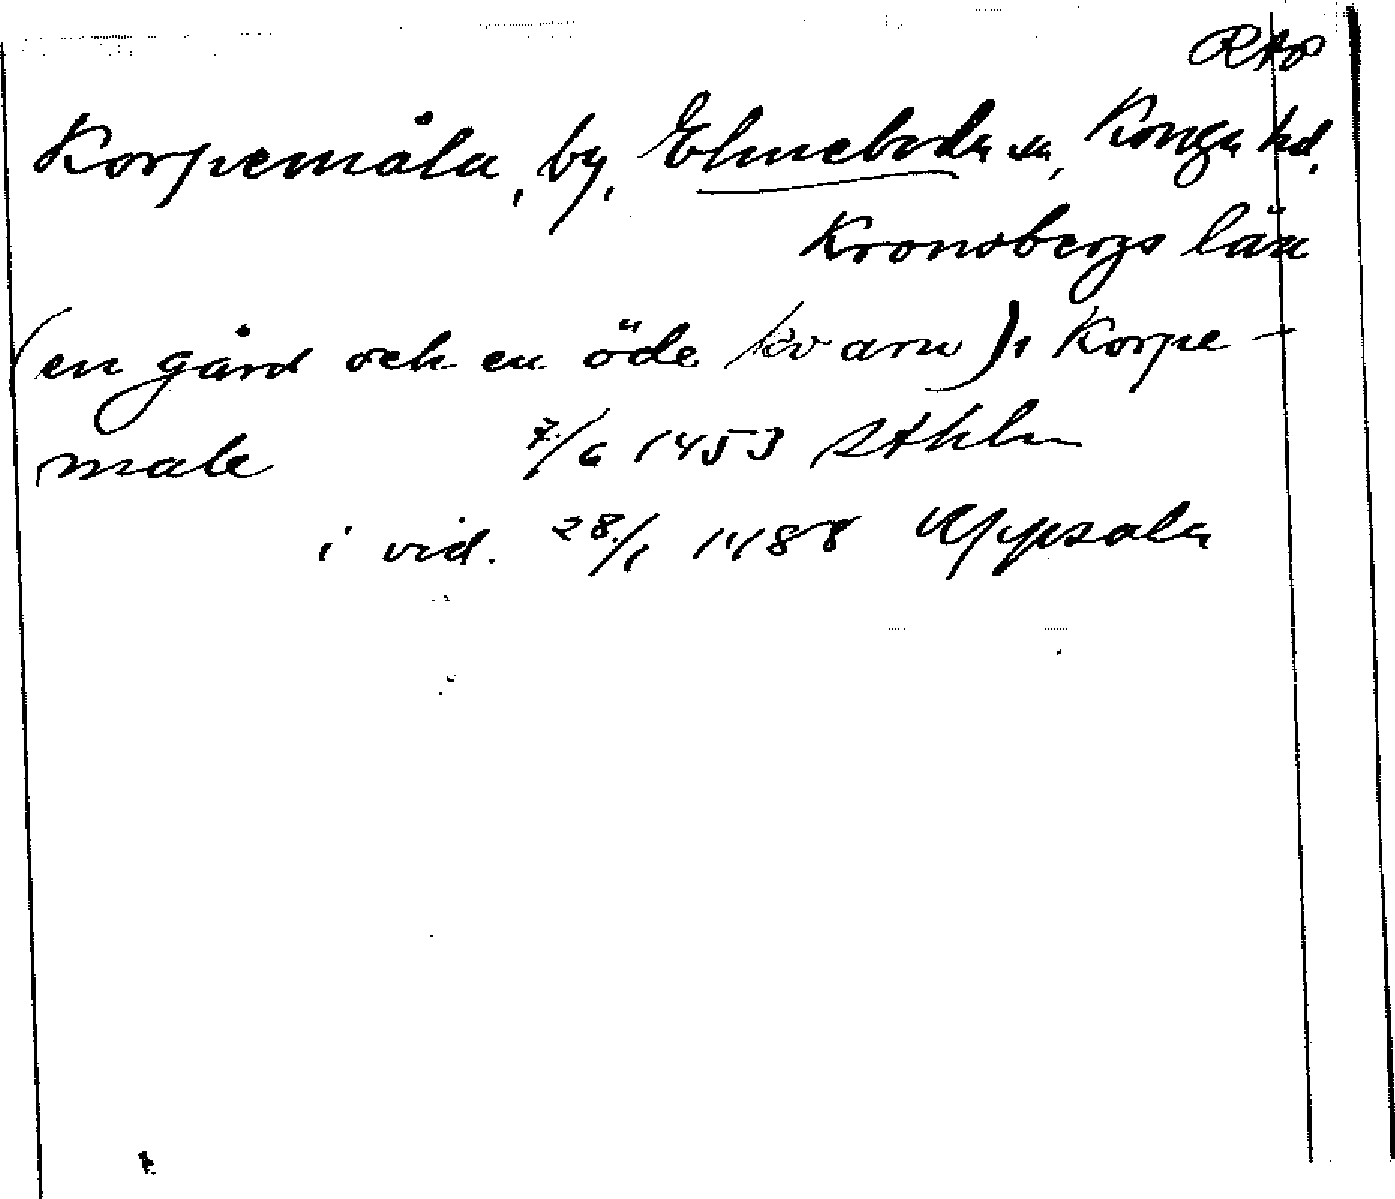 RAp
Korpemåla, by, Elmeboda sn, Konga hd,
Kronobergs län
(en gård och en öde kvarn), i Korpe-
male 7/6 1453 Sthlm
i vid. 28/1 1488 Uppsala